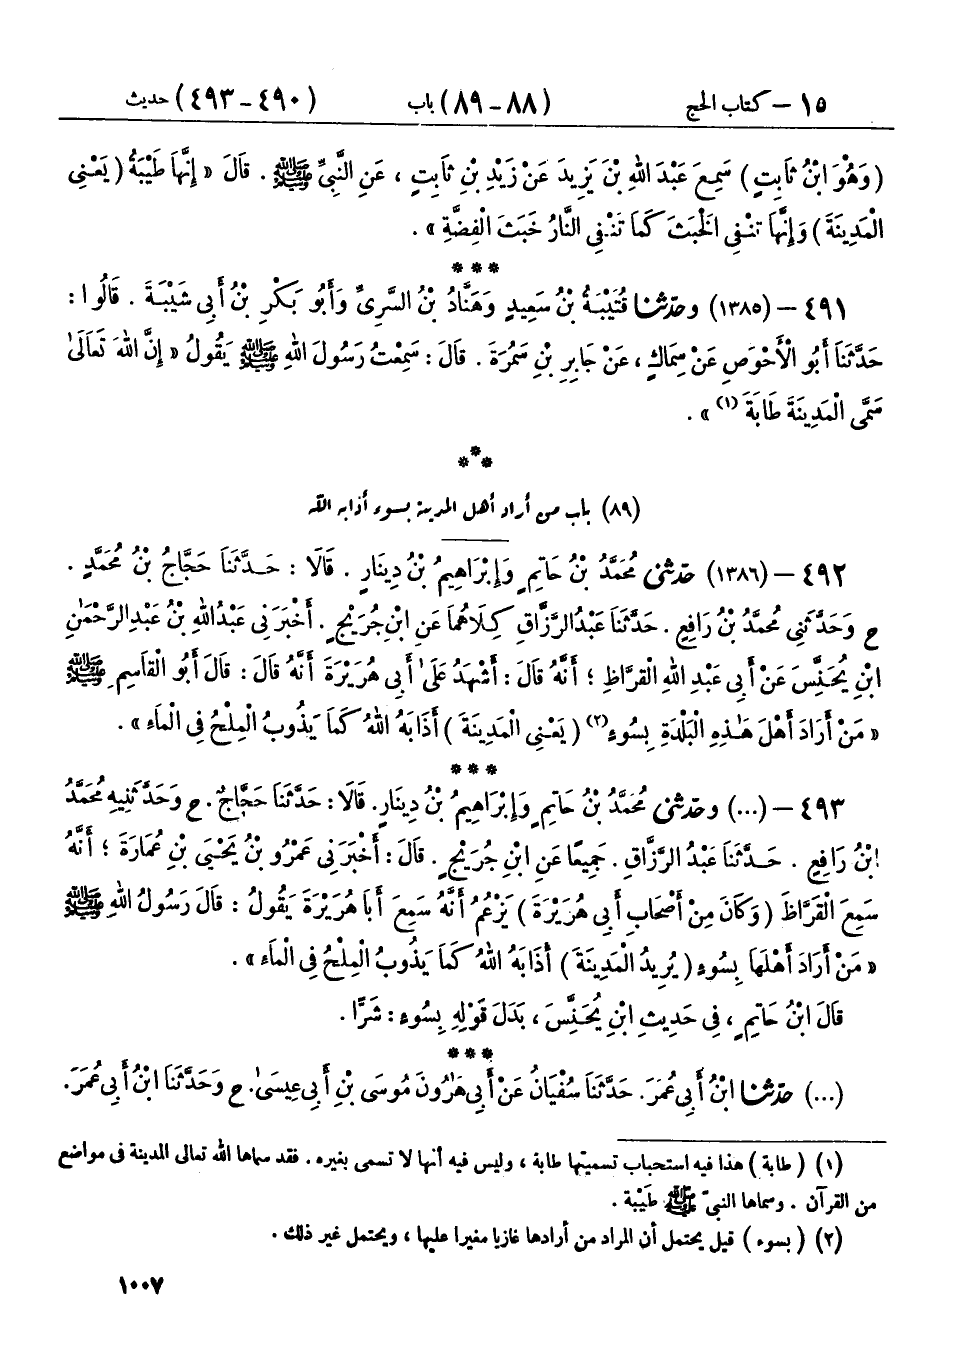 ١٥ – كتاب الحج (٨٨ – ٨٩) باب (٤٩٠ – ٤٩٣) حديث
(وَهُوَ ابْنُ ثَابِتٍ) سَمِعَ عَبْدَ اللهِ بْنَ يَزِيدَ عَنْ زَيْدِ بْنِ ثَابِتٍ، عَنِ النَّبِيِّ ﷺ. قَالَ «إِنَّهَا طَيْبَةُ (يَعْنِي
الْمَدِينَةَ) وَإِنَّهَا تَنْفِي الْخَبَثَ كَمَا تَنْفِي النَّارُ خَبَثَ الْفِضَّةِ».
***
٤٩١ – (١٣٨٥) وحدّثنا قُتَيْبَةُ بْنُ سَعِيدٍ وَهَنَّادُ بْنُ السَّرِيِّ وَأَبُو بَكْرِ بْنُ أَبِي شَيْبَةَ. قَالُوا:
حَدَّثَنَا أَبُو الْأَحْوَصِ عَنْ سِمَاكٍ، عَنْ جَابِرِ بْنِ سَمُرَةَ. قَالَ: سَمِعْتُ رَسُولَ اللهِ ﷺ يَقُولُ «إِنَّ اللهَ تَعَالَىٰ
سَمَّى الْمَدِينَةَ طَابَةَ (١)».
***
(٨٩) باب من أراد أهل المدينة بسوء أذابه الله
٤٩٢ – (١٣٨٦) حدّثني مُحَمَّدُ بْنُ حَاتِمٍ وَإِبْرَاهِيمُ بْنُ دِينَارٍ. قَالَا: حَدَّثَنَا حَجَّاجُ بْنُ مُحَمَّدٍ.
ح وَحَدَّثَنِي مُحَمَّدُ بْنُ رَافِعٍ. حَدَّثَنَا عَبْدُ الرَّزَّاقِ كِلَاهُمَا عَنِ ابْنِ جُرَيْجٍ. أَخْبَرَنِي عَبْدُ اللهِ بْنُ عَبْدِ الرَّحْمَٰنِ
ابْنِ يُحَنِّسَ عَنْ أَبِي عَبْدِ اللهِ الْقَرَّاظِ؛ أَنَّهُ قَالَ: أَشْهَدُ عَلَىٰ أَبِي هُرَيْرَةَ أَنَّهُ قَالَ: قَالَ أَبُو الْقَاسِمِ ﷺ
«مَنْ أَرَادَ أَهْلَ هَٰذِهِ الْبَلْدَةِ بِسُوءٍ(٢) (يَعْنِي الْمَدِينَةَ) أَذَابَهُ اللهُ كَمَا يَذُوبُ الْمِلْحُ فِي الْمَاءِ».
***
٤٩٣ – (...) وحدّثني مُحَمَّدُ بْنُ حَاتِمٍ وَإِبْرَاهِيمُ بْنُ دِينَارٍ. قَالَا: حَدَّثَنَا حَجَّاجٌ. ح وَحَدَّثَنِيهِ مُحَمَّدُ
ابْنُ رَافِعٍ. حَدَّثَنَا عَبْدُ الرَّزَّاقِ. جَمِيعًا عَنِ ابْنِ جُرَيْجٍ. قَالَ: أَخْبَرَنِي عَمْرُو بْنُ يَحْيَى بْنِ عُمَارَةَ؛ أَنَّهُ
سَمِعَ الْقَرَّاظَ (وَكَانَ مِنْ أَصْحَابِ أَبِي هُرَيْرَةَ) يَزْعُمُ أَنَّهُ سَمِعَ أَبَا هُرَيْرَةَ يَقُولُ: قَالَ رَسُولُ اللهِ ﷺ
«مَنْ أَرَادَ أَهْلَهَا بِسُوءٍ (يُرِيدُ الْمَدِينَةَ) أَذَابَهُ اللهُ كَمَا يَذُوبُ الْمِلْحُ فِي الْمَاءِ».
قَالَ ابْنُ حَاتِمٍ، فِي حَدِيثِ ابْنِ يُحَنِّسَ، بَدَلَ قَوْلِهِ بِسُوءٍ: شَرًّا.
***
(...) حدّثنا ابْنُ أَبِي عُمَرَ. حَدَّثَنَا سُفْيَانُ عَنْ أَبِي هَٰرُونَ مُوسَى بْنِ أَبِي عِيسَىٰ. ح وَحَدَّثَنَا ابْنُ أَبِي عُمَرَ.
(١) (طابة) هذا فيه استحباب تسميتها طابة، وليس فيه أنها لا تسمى بغيره. فقد سماها الله تعالى المدينة في مواضع
من القرآن. وسماها النبيّ ﷺ طَيْبة.
(٢) (بسوء) قيل يحتمل أن المراد من أرادها غازيا مغيرا عليها، ويحتمل غير ذلك.
١٠٠٧